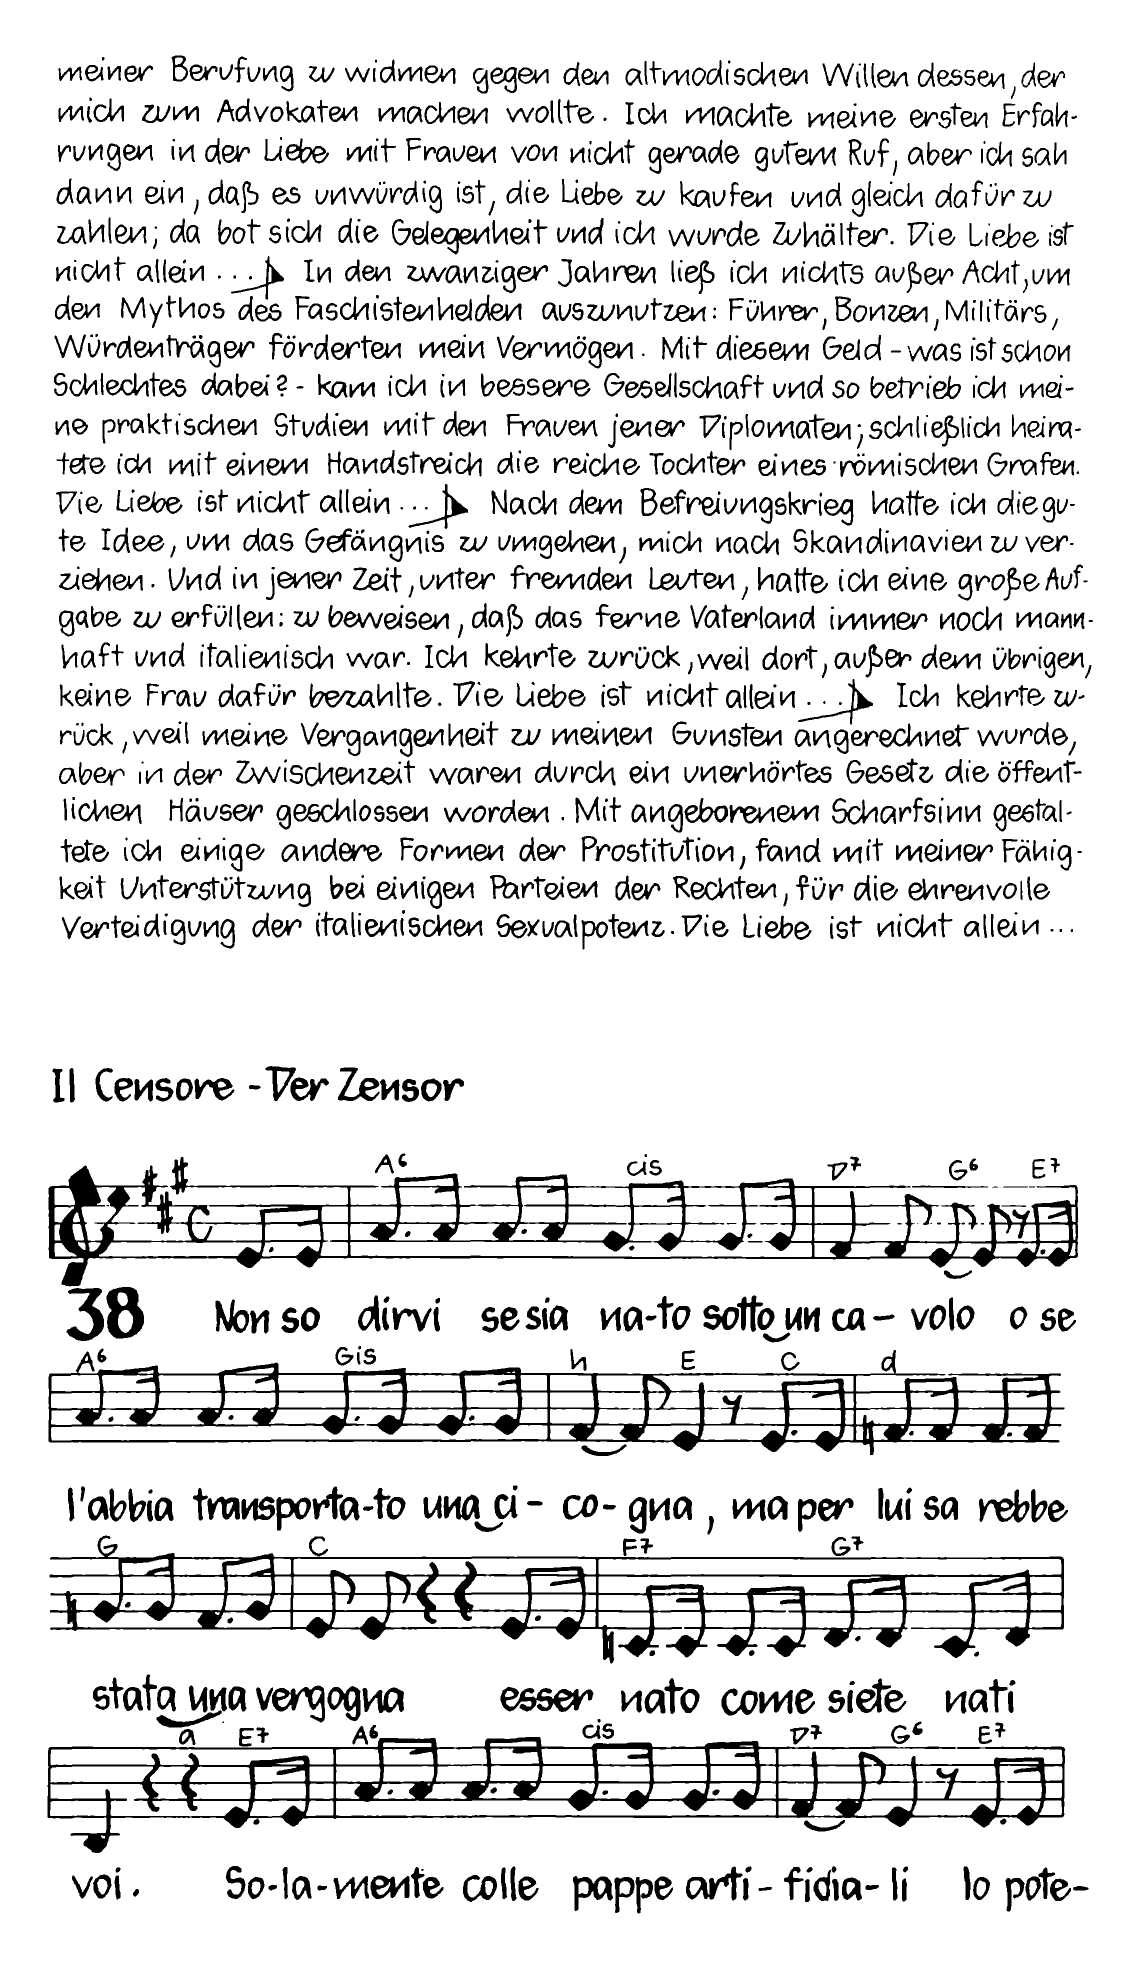 meiner Berufung zu widmen gegen den altmodischen Willen dessen, der
mich zum Advokaten machen wollte. Ich machte meine ersten Erfah-
rungen in der Liebe mit Frauen von nicht gerade gutem Ruf, aber ich sah
dann ein, daß es unwürdig ist, die Liebe zu kaufen und gleich dafür zu
zahlen; da bot sich die Gelegenheit und ich wurde Zuhälter. Die Liebe ist
nicht allein ... In den zwanziger Jahren ließ ich nichts außer Acht, um
den Mythos des Faschistenhelden auszunutzen: Führer, Bonzen, Militärs,
Würdenträger förderten mein Vermögen. Mit diesem Geld - was ist schon
Schlechtes dabei? - kam ich in bessere Gesellschaft und so betrieb ich mei-
ne praktischen Studien mit den Frauen jener Diplomaten; schließlich heira-
tete ich mit einem Handstreich die reiche Tochter eines römischen Grafen.
Die Liebe ist nicht allein ... Nach dem Befreiungskrieg hatte ich die gu-
te Idee, um das Gefängnis zu umgehen, mich nach Skandinavien zu ver-
ziehen. Und in jener Zeit, unter fremden Leuten, hatte ich eine große Auf-
gabe zu erfüllen: zu beweisen, daß das ferne Vaterland immer noch mann-
haft und italienisch war. Ich kehrte zurück, weil dort, außer dem übrigen,
keine Frau dafür bezahlte. Die Liebe ist nicht allein ... Ich kehrte zu-
rück, weil meine Vergangenheit zu meinen Gunsten angerechnet wurde,
aber in der Zwischenzeit waren durch ein unerhörtes Gesetz die öffent-
lichen Häuser geschlossen worden. Mit angeborenem Scharfsinn gestal-
tete ich einige andere Formen der Prostitution, fand mit meiner Fähig-
keit Unterstützung bei einigen Parteien der Rechten, für die ehrenvolle
Verteidigung der italienischen Sexualpotenz. Die Liebe ist nicht allein ...
Il Censore - Der Zensor
A6 cis D7 G6 E7
C
38 Non so dirvi se sia na-to sotto un ca- volo o se
A6 Gis h E C d
l'abbia transporta-to una ci- co- gna, ma per lui sa rebbe
G C F7 G7
stata una vergogna esser nato come siete nati
a E7 A6 cis D7 G6 E7
voi. So-la-mente colle pappe arti- fidia-li lo pote-